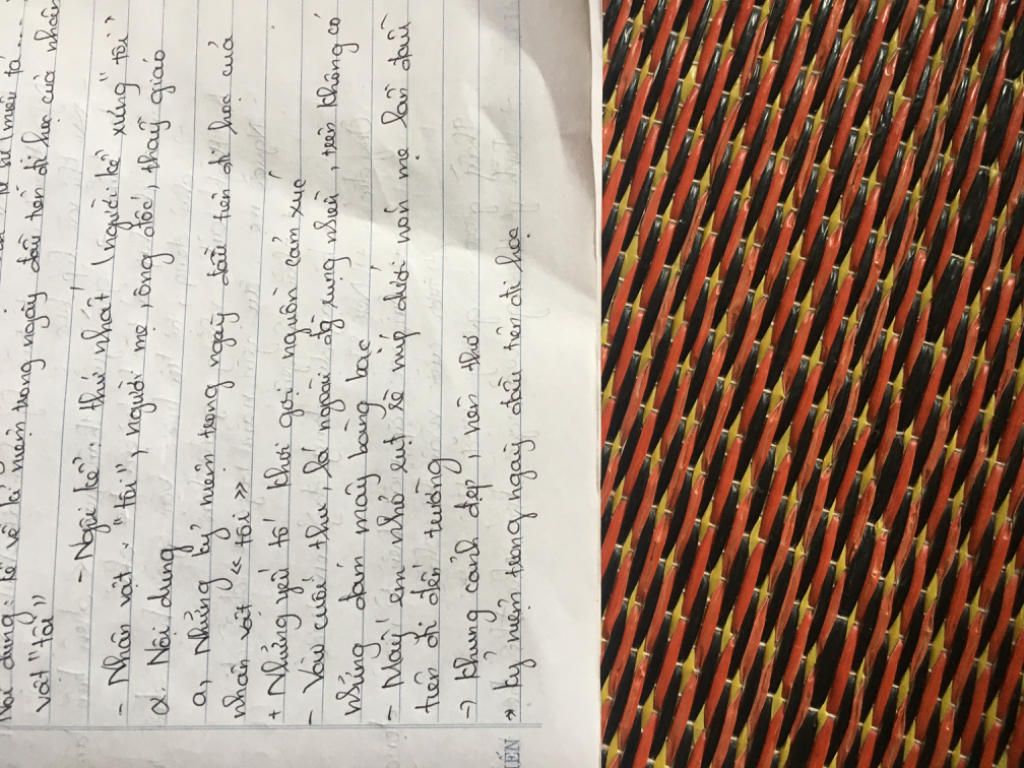 Nội dung: kể về kỉ niệm trong ngày đầu tiên đi học của nhân
vật "tôi"
-> Ngôi kể: thứ nhất (người kể xưng "tôi"
- Nhân vật: "tôi", người mẹ, ông đốc, thầy giáo
2. Nội dung
a, Những kỷ niệm trong ngày đầu tiên đi học của
nhân vật "tôi"
+ Những yếu tố khơi gợi nguồn cảm xúc
- Vào cuối thu, lá ngoài đg rụng nhiều, trên không có
những đám mây bàng bạc
- Mấy em nhỏ rụt rè núp dưới nón mẹ lần đầu
tiên đi đến trường
-> khung cảnh đẹp, nên thơ
=> kỷ niệm trong ngày đầu tiên đi học